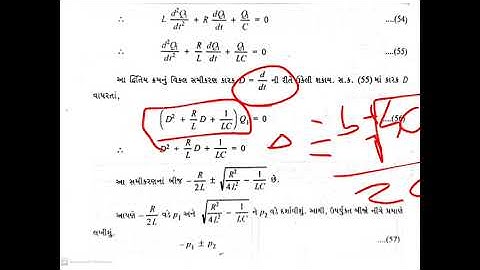 ∴ L d²Q₁/dt² + R dQ₁/dt + Q₁/C = 0 ....(54)
∴ d²Q₁/dt² + R/L dQ₁/dt + Q₁/LC = 0 ....(55)
આ દ્વિતિય ક્રમનું વિકલ સમીકરણ કારક D = d/dt ની રીતે ઉકેલી શકાય. સ.ક. (55) માં કારક D
વાપરતાં,
(D² + R/L D + 1/LC) Q₁ = 0 ....(56)
∴ D² + R/L D + 1/LC = 0
આ સમીકરણનાં બીજ – R/2L ± √(R²/4L² – 1/LC) છે.
આપણે – R/2L વડે p₁ અને √(R²/4L² – 1/LC) ને p₂ વડે દર્શાવીશું. આથી, ઉપર્યુક્ત બીજો નીચે પ્રમાણે
લખીશું.
–p₁ ± p₂ ....(57)